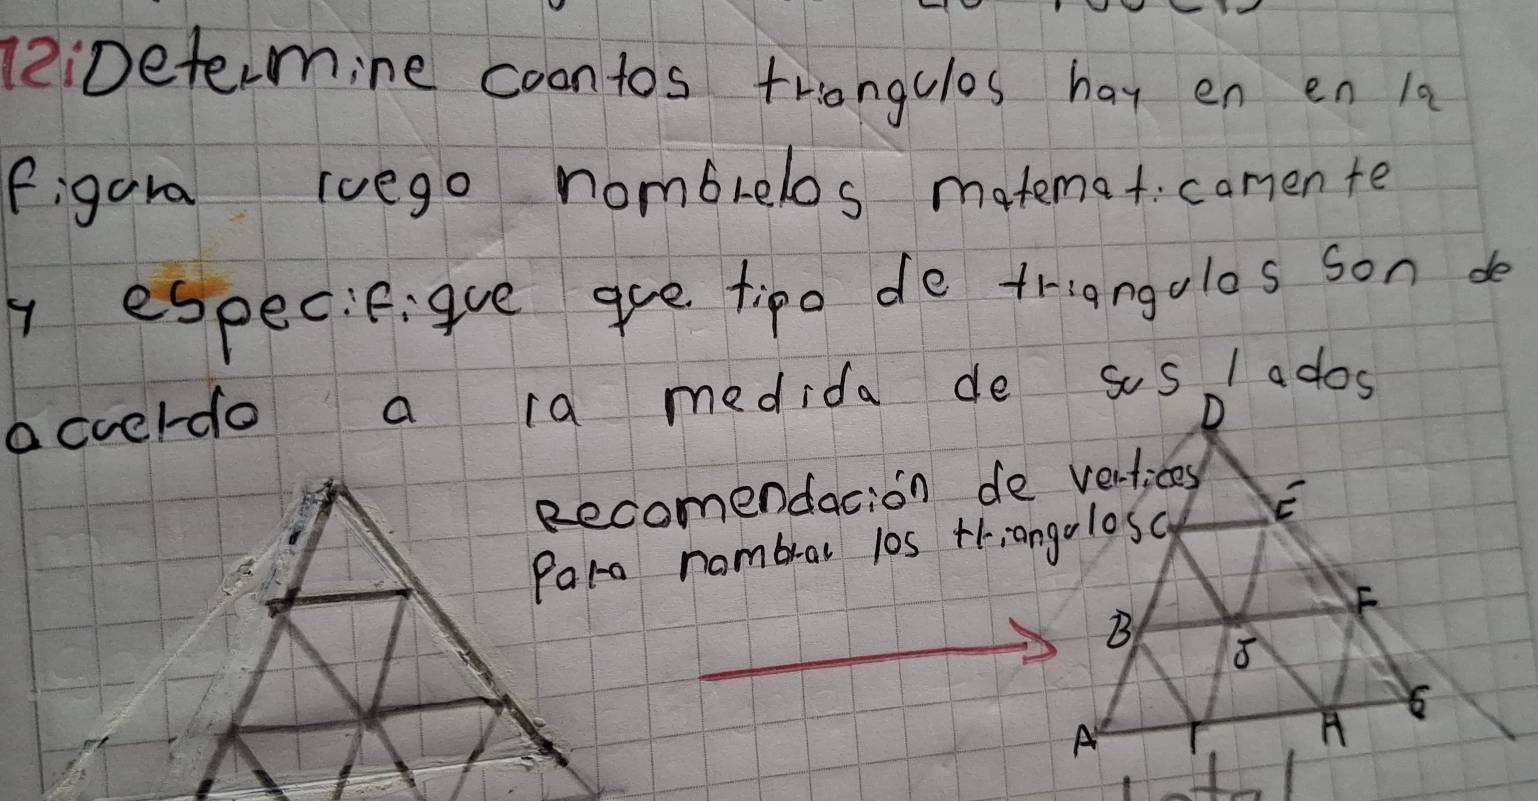 12. Determine coontos triangulos hay en en la
figura luego nombrelos matematicamente
y especifique que tipo de triangulos son de
acuerdo a la medida de sus lados
Recomendación de vertices
Para nombrar los triangulos
D
E
C
F
B
J
G
A
I
H
total